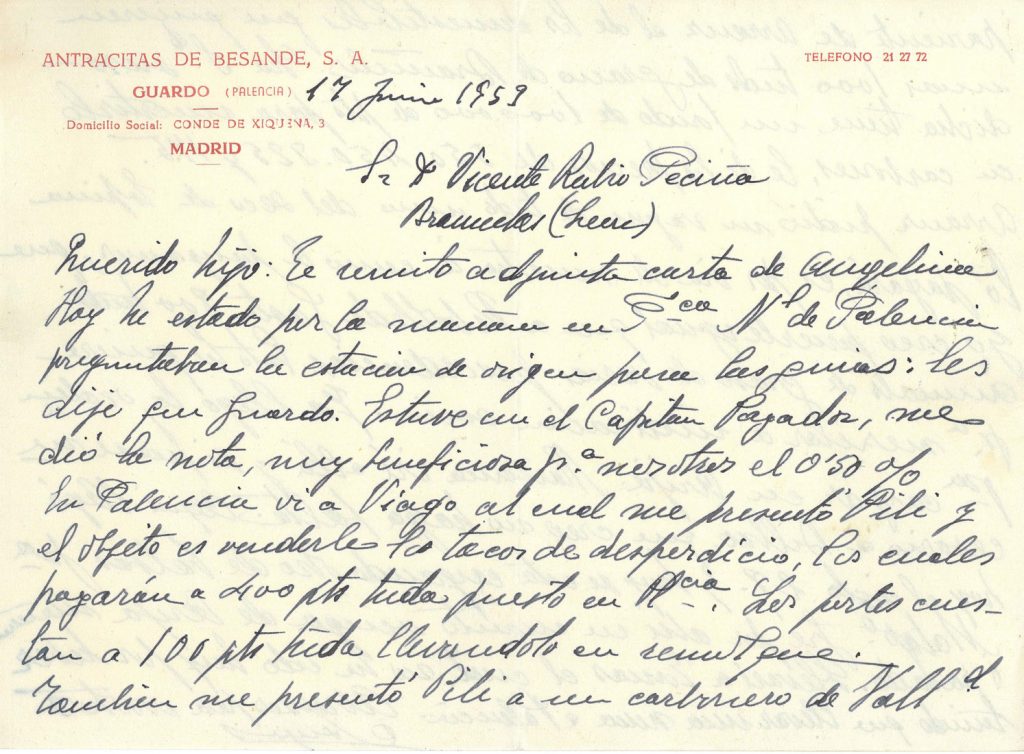 ANTRACITAS DE BESANDE, S. A.
TELEFONO 21 27 72
GUARDO (PALENCIA) 17 Junio 1959
Domicilio Social: CONDE DE XIQUENA, 3
MADRID
Sr D Vicente Rubio Peciña
Brañuelas (León)
Querido hijo: Te remito adjunta carta de Angelina
Hoy he estado por la mañana en F.ca N.l de Palencia
preguntaban la estación de origen para las guias: les
dije que Guardo. Estuve con el Capitan Pagador, me
dió la nota, muy beneficiosa p.a nosotros el 0'50 %
En Palencia vi a Viago al cual me presentó Pili y
el objeto es venderle los tacos de desperdicio, los cuales
pagarán a 400 pts tnda puesto en P.cia. Los portes cues-
tan a 100 pts tnda llevandolo en remolque.
Tambien me presentó Pili a un carbonero de Vall.d